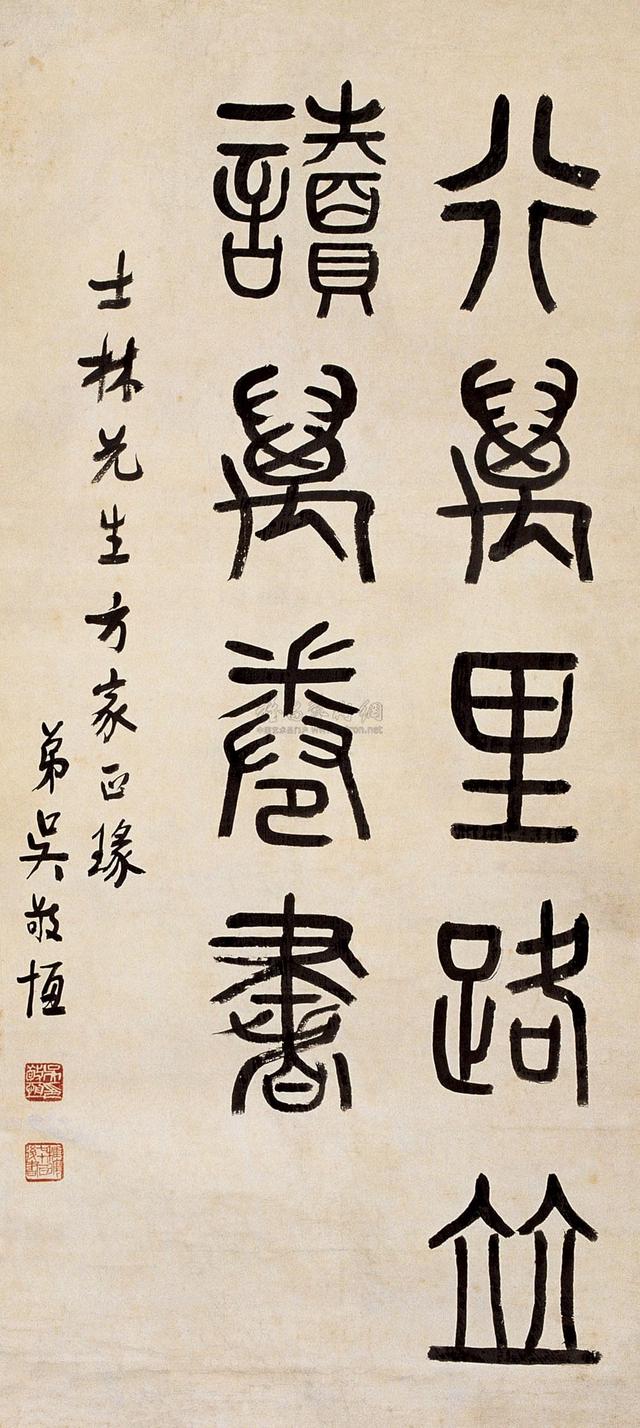 行萬里路並
讀萬卷書
士林先生方家正瑑
弟吳敬恆